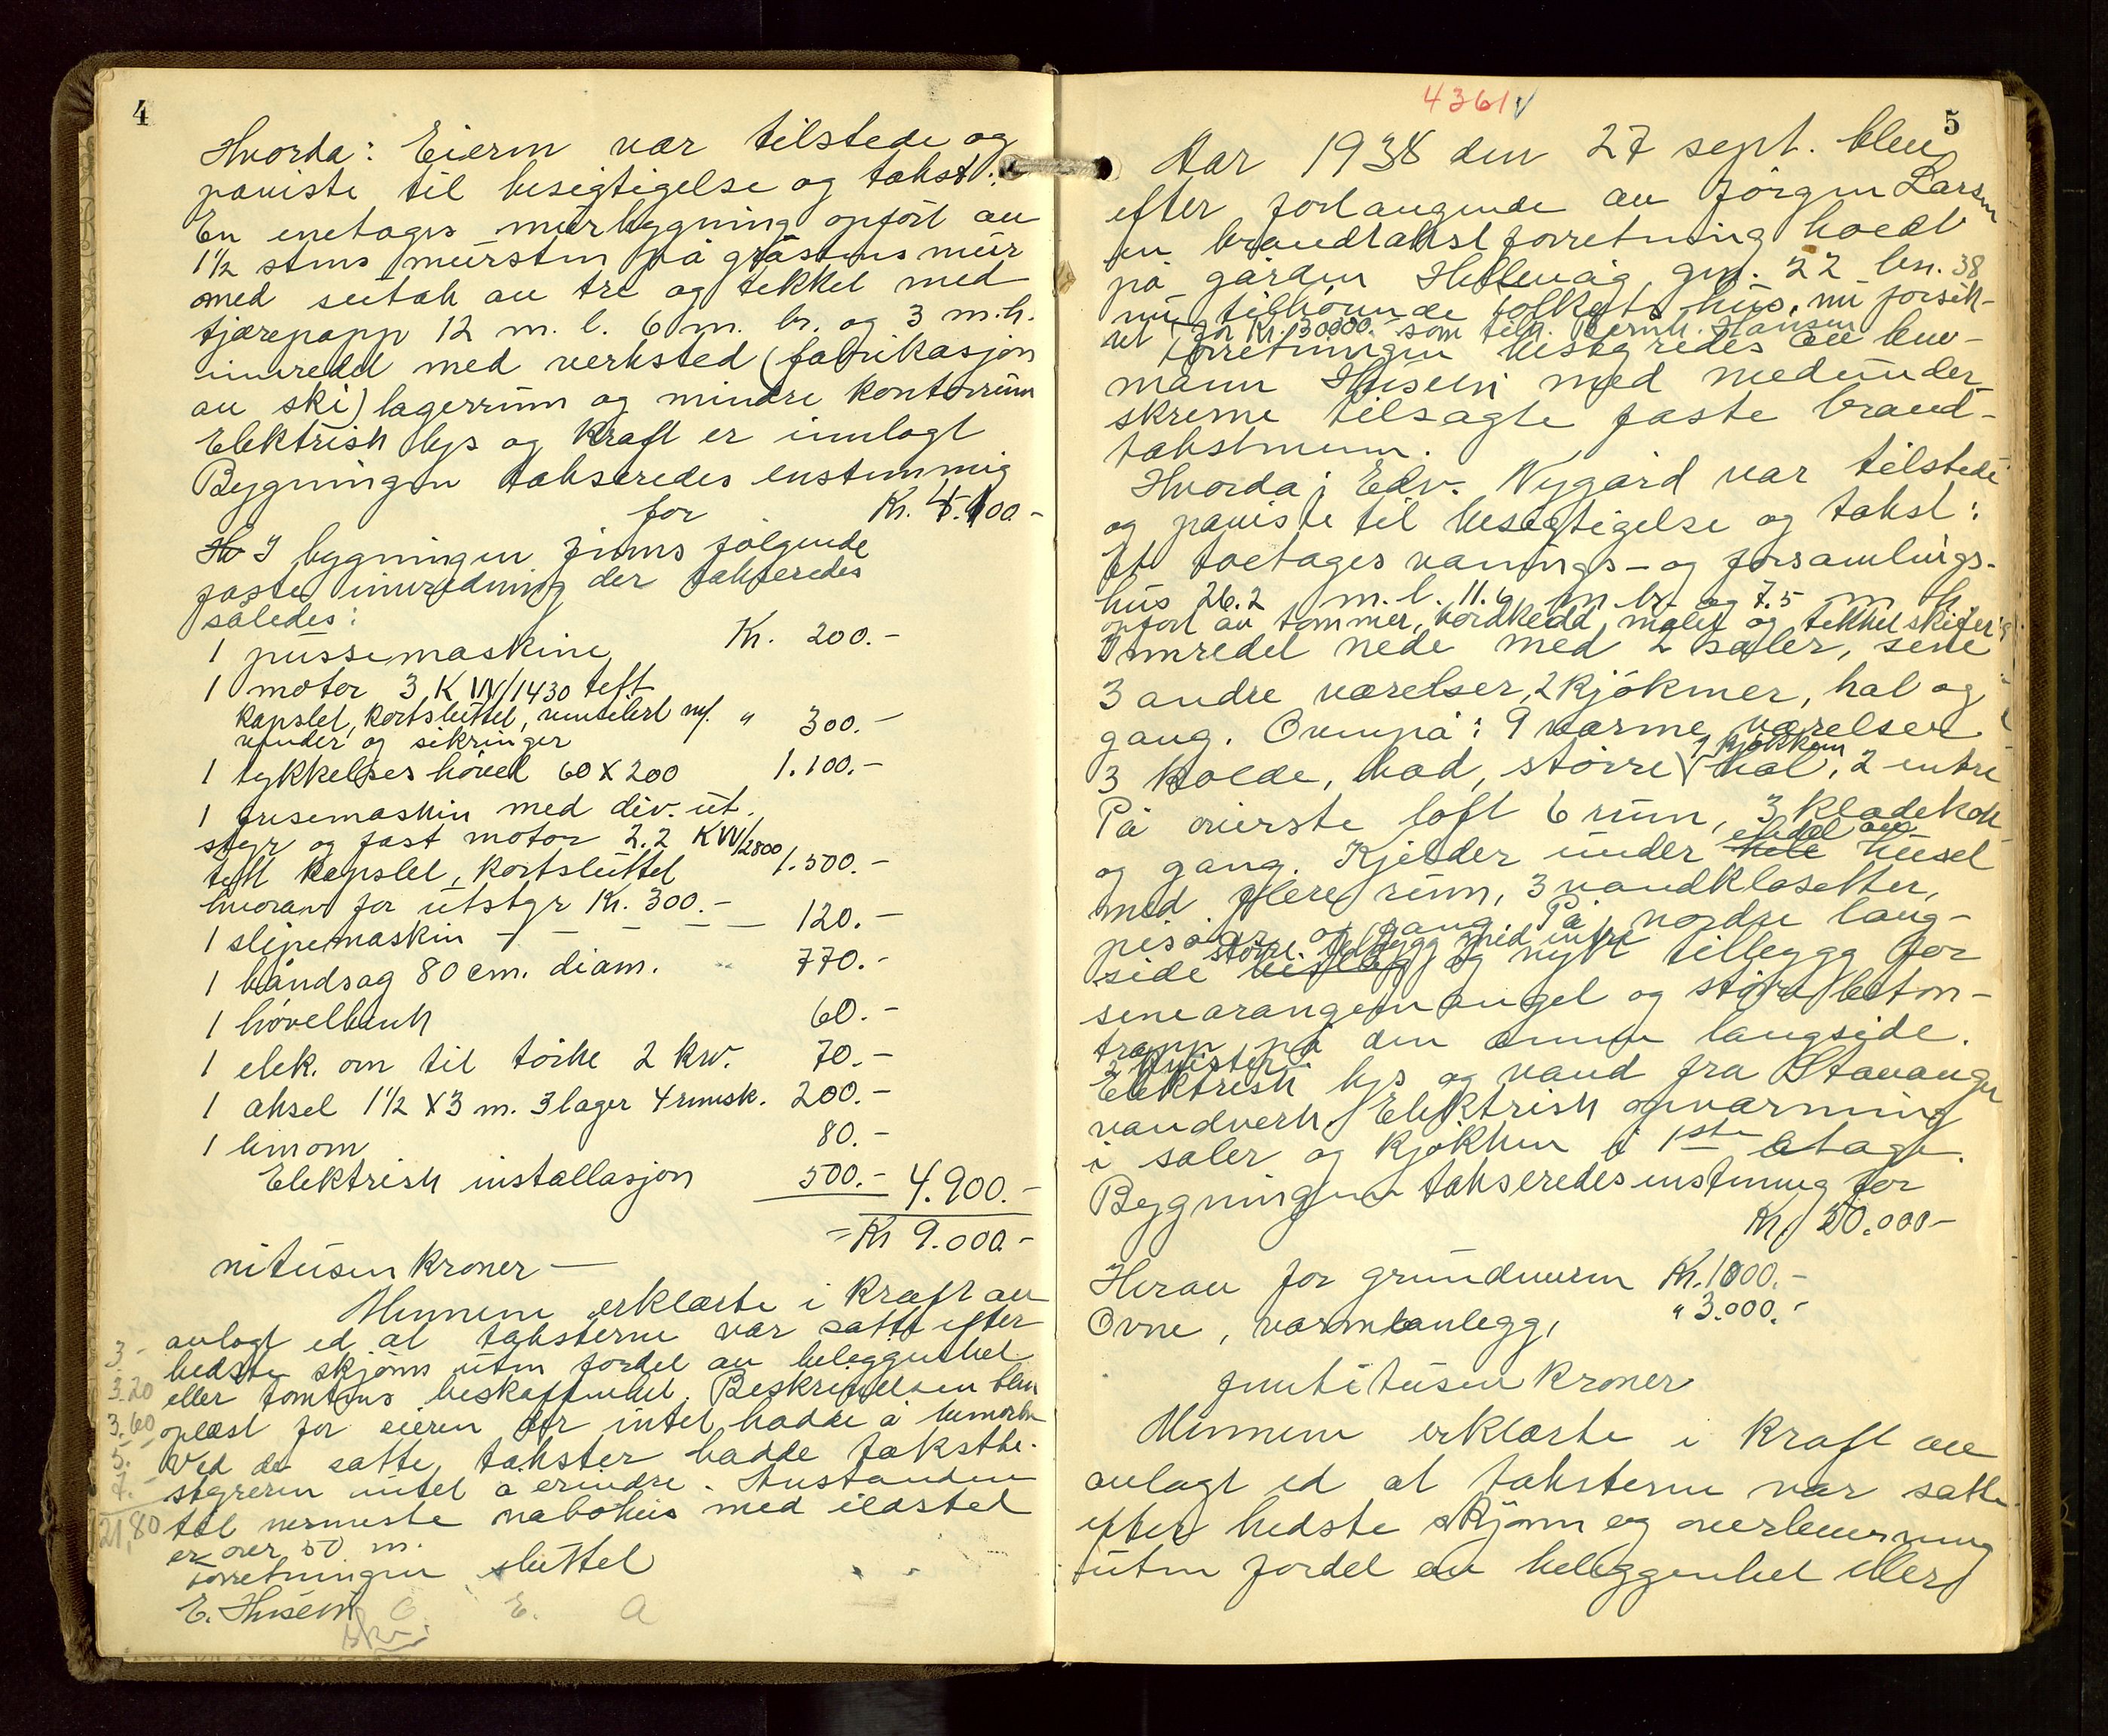 4
Hvorda: Eieren var tilstede og
paviste til besigtigelse og takst:
En enetages murbygning opført av
1½ stens mursten på gråstens mur
med sutak av tre og tekket med
tjærepapp 12 m. l. 6 m. br. og 3 m. h.
innredet med verksted (fabrikasjon
av ski) lagerrum og mindre kontorrum
Elektrisk lys og kraft er innlagt
Bygningen takseredes enstemmig
for Kr. 4.100.-
I bygningen finns følgende
faste innredning der takseredes
således:
1 pussemaskine Kr. 200.-
1 motor 3 KW/1430 teft
kapslet, kortsluttet, ventilert m/.
vender og sikringer " 300.-
1 tykkelseshøvel 60 x 200 1.100.-
1 fresemaskin med div. ut.
styr og fast motor 2.2 KW/2800
teft kapslet, kortsluttet 1.500.-
hvorav for utstyr Kr. 300.-
1 slipemaskin - - - - - 120.-
1 båndsag 80 cm. diam. 770.-
1 høvelbenk 60.-
1 elek. ovn til tørke 2 kw. 70.-
1 aksel 1½ x 3 m. 3 lager 4 remsk. 200.-
1 limovn 80.-
Elektrisk installasjon 500.- 4.900.-
= Kr 9.000.-
nitusen kroner —
Mennene erklærte i kraft av
avlagt ed at taksterne var satt efter
3.-
bedste skjønn uten fordel av beliggenhet
3.20
eller tomtens beskaffenhet. Beskrivelsen blev
3.60
oplæst for eieren der intet hadde å bemerke
5.-
Ved de satte takster hadde takstbe-
7.-
styreren intet å erindre. Avstanden
21,80
til nermeste nabohus med ildsted
er over 50 m.
Forretningen sluttet
E. Husebø
5
4361 v
Aar 1938 den 27 sept. blev
efter forlangende av Jørgen Larsen
en brandtakstforretning holdt
på gården Hillevåg gn. 22 bn. 38
nu tilhørende folkets hus, nu forsik-
ret for Kr. 30000.- som tilh. Bernh. Hansen
Forretningen bestyredes av lens-
mann Husebø med medunder-
skrevne tilsagte faste brand-
takstmenn.
Hvorda: Edv. Nygård var tilstede
og paviste til besigtigelse og takst:
Et toetages vånings- og forsamlings-
hus 26.2 m. l. 11.6 m. br. og 7.5 m h
opført av tømmer, bordkledd, malet og tekket skifer
Innredet nede med 2 saler, sene
3 andre værelser, 2 kjøkner, hal og
gang. Ovenpå: 9 varme værelser
3 kolde, bad, større hal, 2 entre
1 kjøkken
På øverste loft 6 rum, 3 kladekott
og gang. Kjelder under hele huset
endel av
med flere rum, 3 vandklosetter,
pisoar og gang. På nordre lang-
større tilbygg med entre
side og nytt tillegg for
senearangemanget og større beton-
trapp på den annen langside.
2 kvister.
Elektrisk lys og vand fra Stavanger
vandverk. Elektrisk opvarming
i saler og kjøkken i 1ste etage.
Bygningen takseredes enstemmig for
Kr. 50.000-
Herav for grundmuren Kr. 1000.-
Ovne, varmeanlegg, " 3.000.-
femtitusen kroner
Mennene erklærte i kraft av
avlagt ed at taksterne var satt
efter bedste skjønn og overbevisning
uten fordel av beliggenhet eller